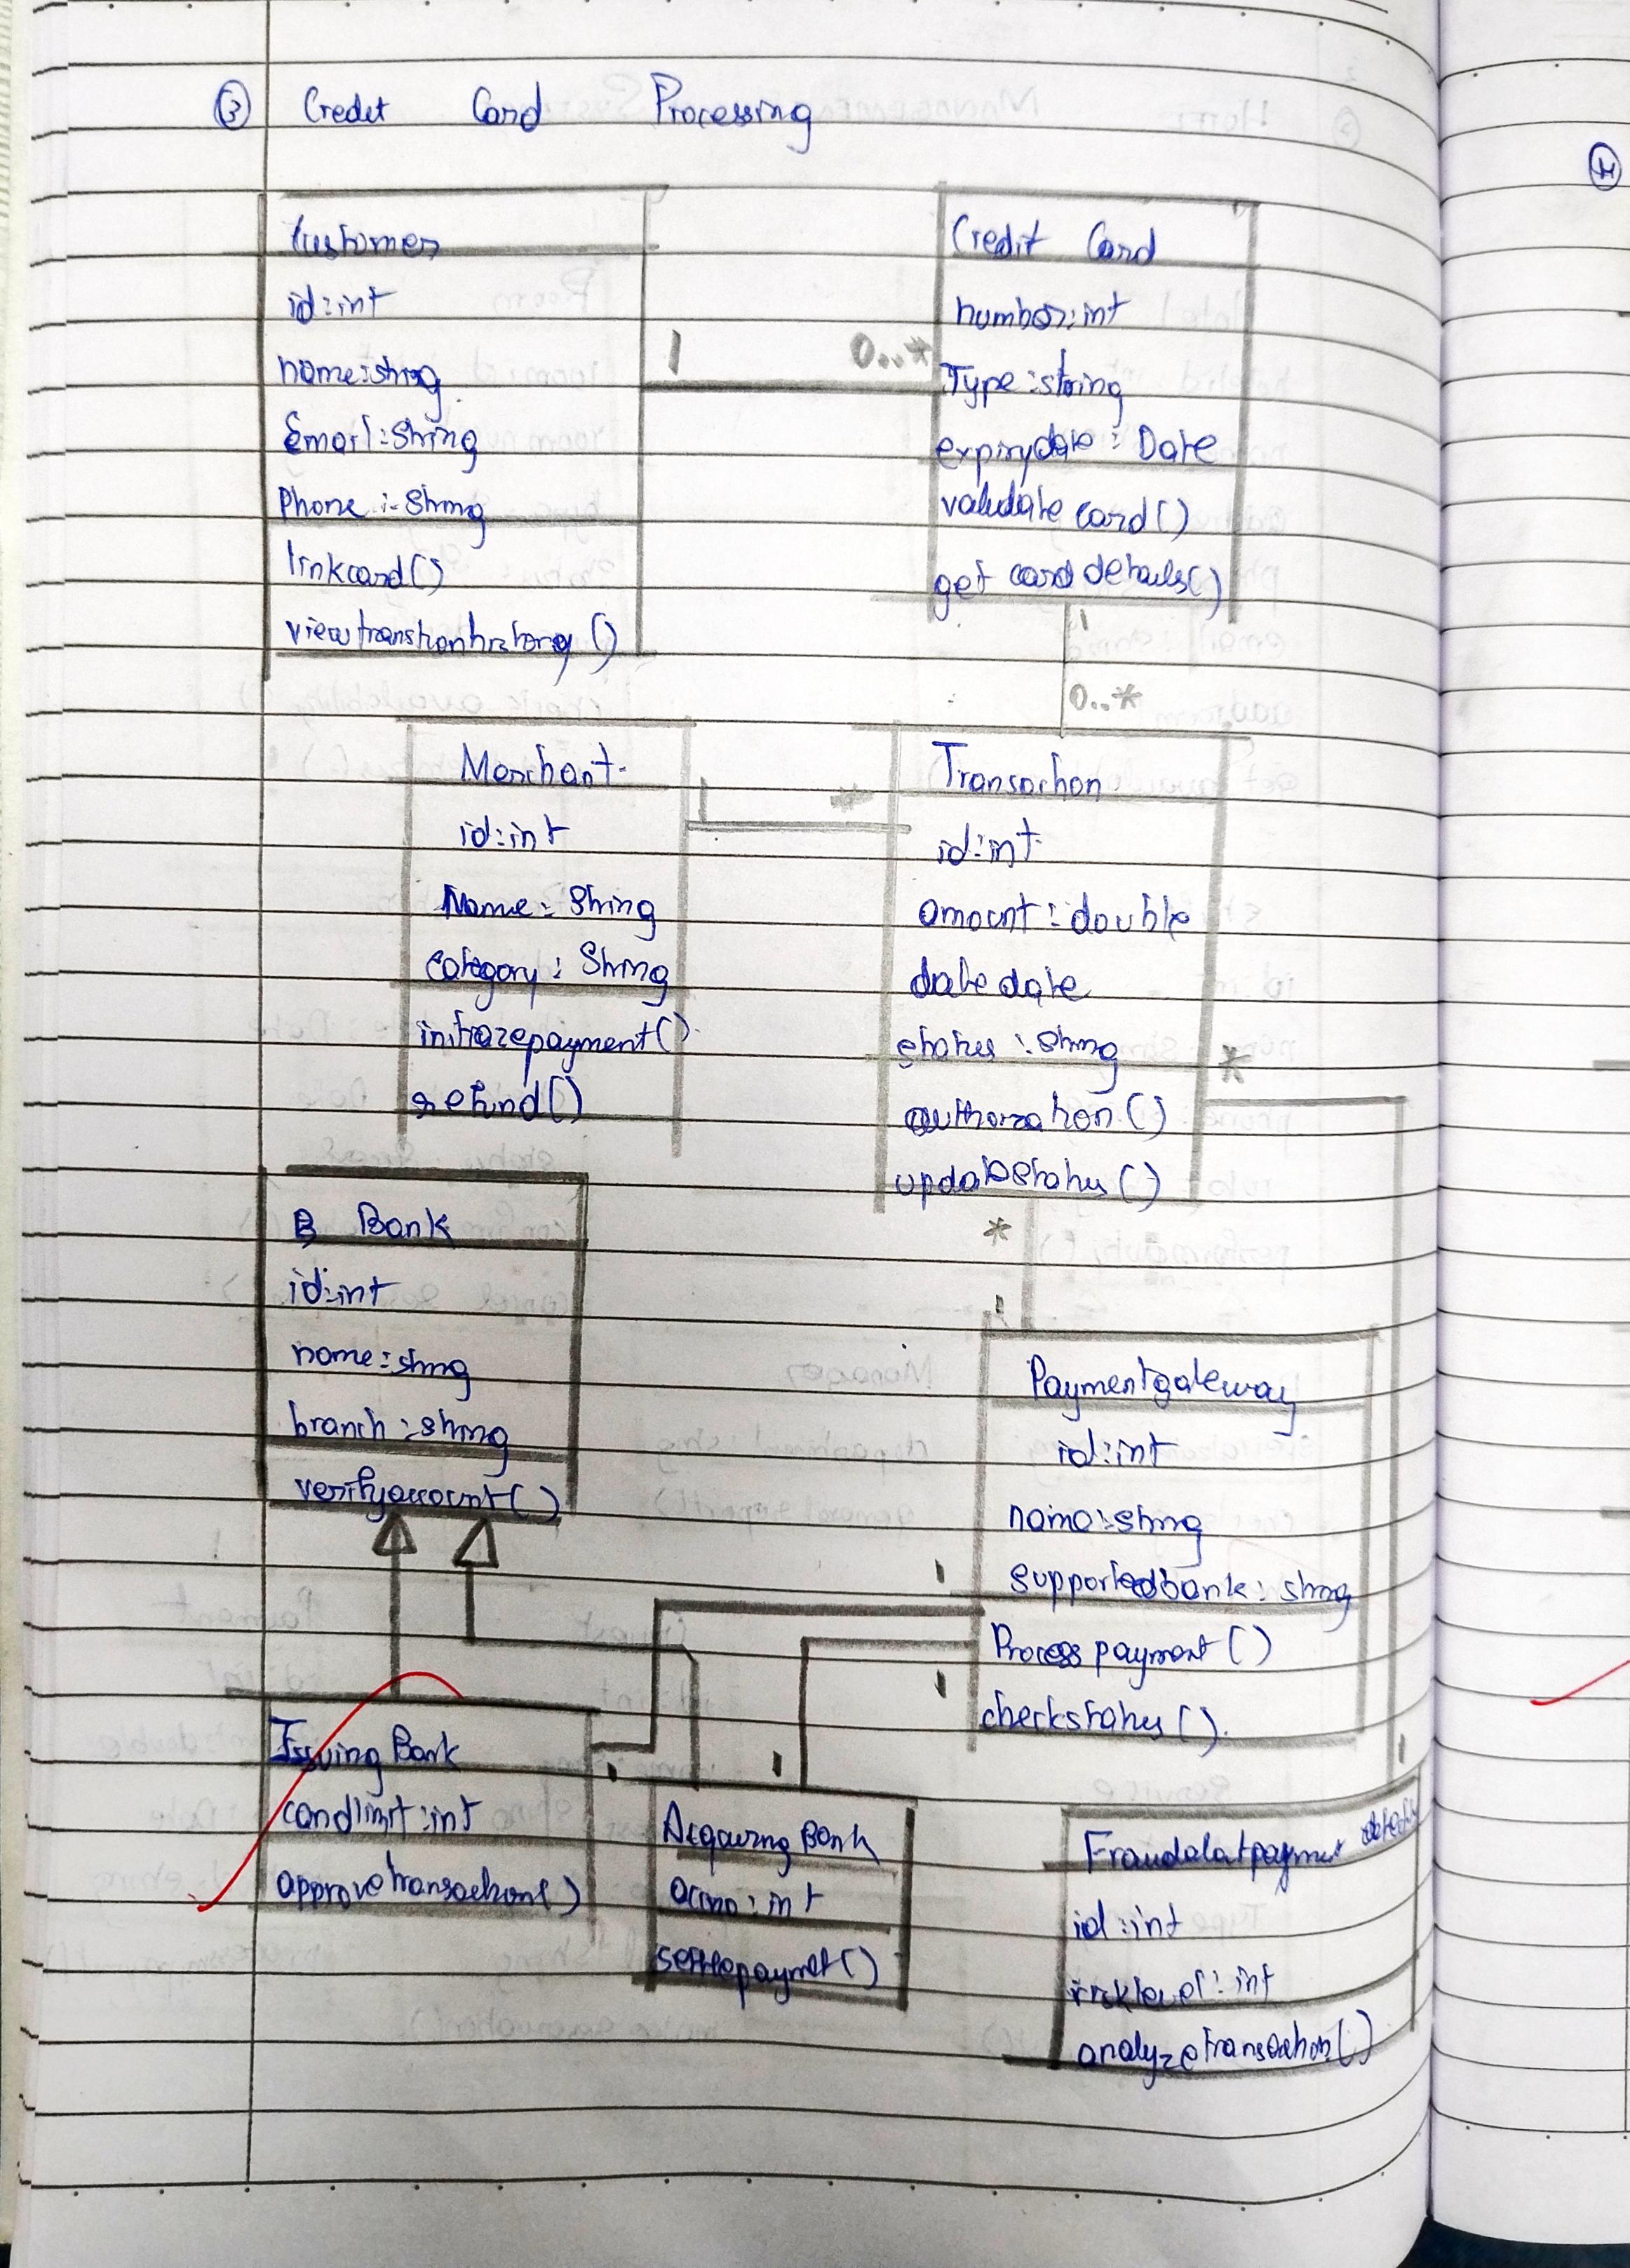 ③ Credit Card Processing
Customer
id:int
name:string
Email:String
Phone:-String
linkcard()
viewtranstionhistory()
1
0..*
Credit Card
number:int
Type:string
expirydate: Date
validate card()
get card details()
1
0..*
Merchant
id:int
Name: String
category: String
refund()
1
*
Transaction
id:int
amount:double
date date
status:string
authorization()
updatestatus()
*
*
1
B Bank
id:int
name:string
branch:string
verifyaccount()
Paymentgateway
id:int
name:string
supportedbank: string
Process payment()
checkstatus()
1
1
Issuing Bank
cardlimit:int
approvetransactions()
1
1
Acquiring Bank
accno:int
settlepaymet()
1
id:int
risklevel:int
analyzetransaction()